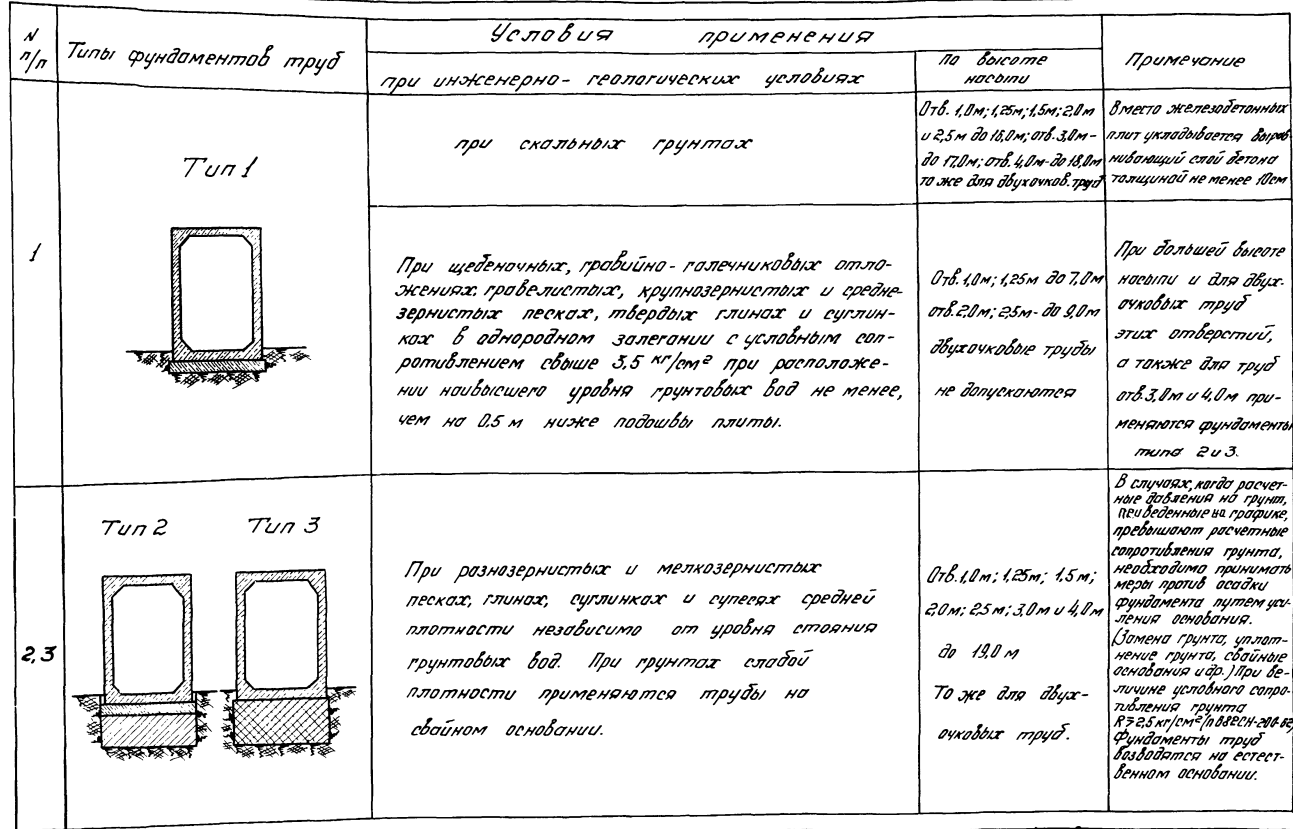 N п/п
Типы фундаментов труб
Условия применения
при инженерно-геологических условиях
по высоте
насыпи
Примечание
1
Тип 1
при скальных грунтах
Отв. 1,0м; 1,25м; 1,5м; 2,0м
и 2,5м до 16,0м; отв. 3,0м-
до 17,0м; отв. 4,0м-до 18,0м
то же для двухочков. труб
Вместо железобетонных
плит укладывается вырав-
нивающий слой бетона
толщиной не менее 10см
При щебеночных, гравийно-галечниковых отло-
жениях, гравелистых, крупнозернистых и средне-
зернистых песках, твердых глинах и суглин-
ках в однородном залегании с условным соп-
ротивлением свыше 3,5 кг/см² при расположе-
нии наивысшего уровня грунтовых вод не менее,
чем на 0.5 м ниже подошвы плиты.
Отв. 1,0м; 1,25м до 7,0м
отв. 2,0м; 2,5м- до 9,0м
двухочковые трубы
не допускаются
При большей высоте
насыпи и для двух-
очковых труб
этих отверстий,
а также для труб
отв. 3,0м и 4,0м при-
меняются фундаменты
типа 2 и 3.
2,3
Тип 2 Тип 3
При разнозернистых и мелкозернистых
песках, глинах, суглинках и супесях средней
плотности независимо от уровня стояния
грунтовых вод. При грунтах слабой
плотности применяются трубы на
свайном основании.
Отв. 1,0м; 1,25м; 1,5м;
2,0м; 2,5м; 3,0м и 4,0м
до 19,0 м
То же для двух-
очковых труб.
В случаях, когда расчет-
ные давления на грунт,
приведенные на графике,
превышают расчетные
сопротивления грунта,
необходимо принимать
меры против осадки
фундамента путем уси-
ления основания.
(Замена грунта, уплот-
нение грунта, свайные
основания и др.) При ве-
личине условного сопро-
тивления грунта
R⩾2,5 кг/см²
Фундаменты труб
возводятся на естест-
венном основании.